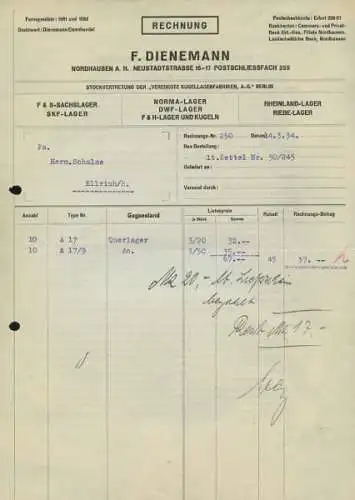 Fernsprecher: 1981 und 1982
Drahtwort: Dienemann Eisenhandel
RECHNUNG
Postscheckkonto: Erfurt
Bankkonten: Commerz- und Privat-
Bank Akt.-Ges., Filiale Nordhausen,
Landschaftliche Bank, Nordhausen
F. DIENEMANN
NORDHAUSEN A. H. NEUSTADTSTRASSE 16-17 POSTSCHLIESSFACH 255
STOCKVERTRETUNG DER „VEREINIGTE KUGELLAGERFABRIKEN, A.-G." BERLIN
F & S-SACHSLAGER
SKF-LAGER
NORMA-LAGER
DWF-LAGER
F & H-LAGER UND KUGELN
RHEINLAND-LAGER
RIEBE-LAGER
Fa.
Herm.Schulze
Ellrich/h.
Rechnungs-Nr. 250 Datum: 14.3.34.
Ihre Bestellung:
lt.Zettel Nr. 50/845
Geliefert am:
Versand durch:
Anzahl Type Nr. Gegenstand Listenpreis Rabatt Rechnungs-Betrag
je Stück Summe
10 A 17 Querlager 3/20 32.--
10 A 17/9 do. 3/50 35.--
67.-- 45 37.--
Mk 20,- lt.
bezahlt
Rest Mk 17.-